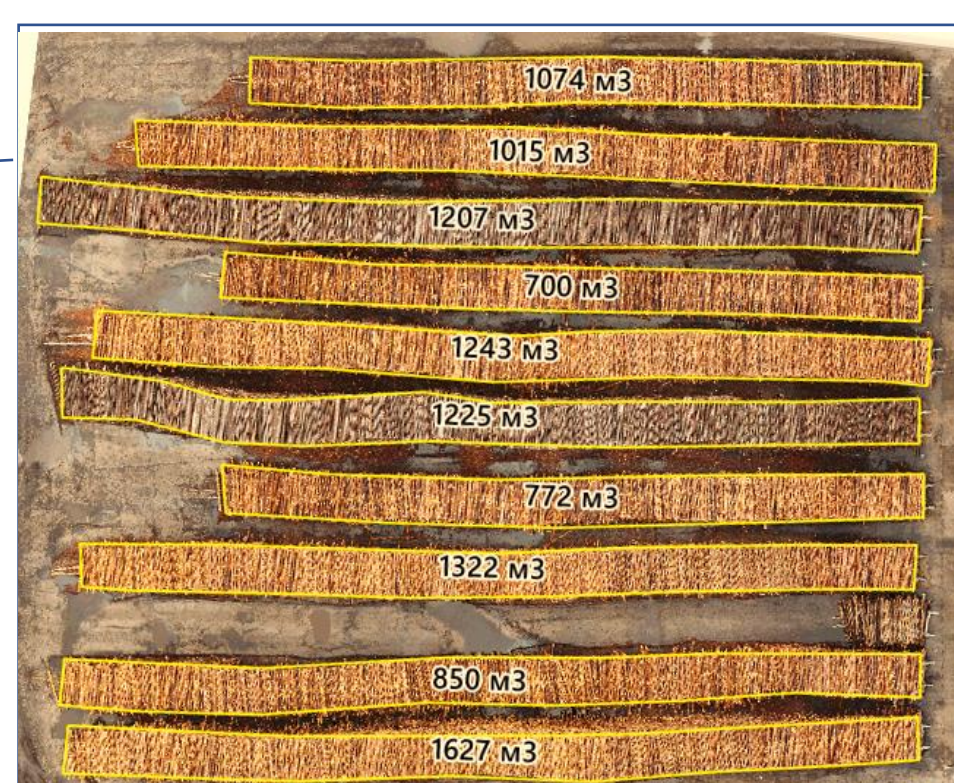 1074 м3
1015 м3
1207 м3
700 м3
1243 м3
1225 м3
772 м3
1322 м3
850 м3
1627 м3